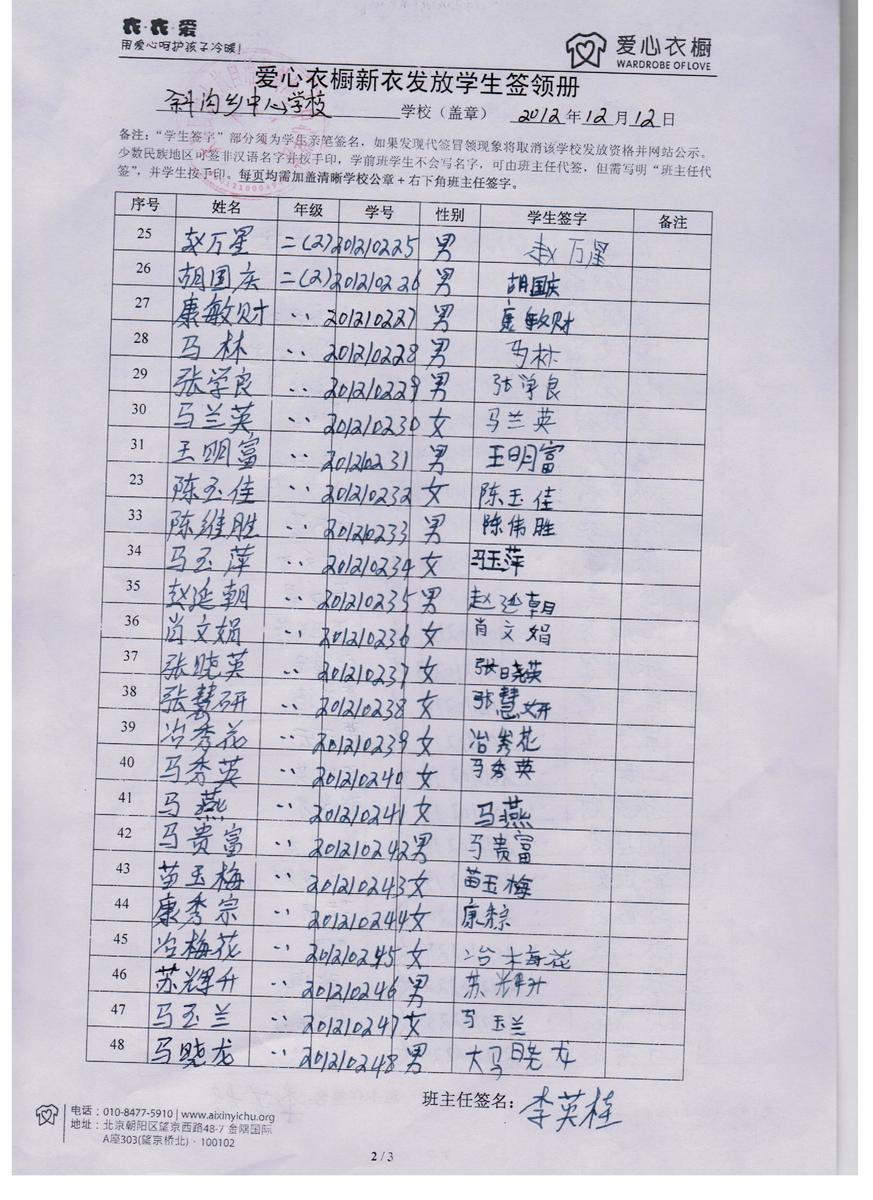 衣·衣·爱
用爱心呵护孩子冷暖!
爱心衣橱
WARDROBE OF LOVE
爱心衣橱新衣发放学生签领册
斜沟乡中心学校 学校（盖章） 2012 年 12 月 12 日
备注：“学生签字”部分须为学生亲笔签名，如果发现代签冒领现象将取消该学校发放资格并网站公示。
少数民族地区可签非汉语名字并按手印，学前班学生不会写名字，可由班主任代签，但需写明“班主任代
签”，并学生按手印。每页均需加盖清晰学校公章+右下角班主任签字。
序号 姓名 年级 学号 性别 学生签字 备注
25 赵万星 二(2) 201210225 男 赵万星
26 胡国庆 二(2) 201210226 男 胡国庆
27 康敏财 〃 201210227 男 康敏财
28 马林 〃 201210228 男 马林
29 张学良 〃 201210229 男 张学良
30 马兰英 〃 201210230 女 马兰英
31 王明富 〃 201210231 男 王明富
23 陈玉佳 〃 201210232 女 陈玉佳
33 陈维胜 〃 201210233 男 陈伟胜
34 马玉萍 〃 201210234 女 马玉萍
35 赵延朝 〃 201210235 男 赵延朝
36 肖文娟 〃 201210236 女 肖文娟
37 张晓英 〃 201210237 女 张晓英
38 张慧研 〃 201210238 女 张慧妍
39 冶秀花 〃 201210239 女 冶秀花
40 马秀英 〃 201210240 女 马秀英
41 马燕 〃 201210241 女 马燕
42 马贵富 〃 201210242 男 马贵富
43 苗玉梅 〃 201210243 女 苗玉梅
44 康秀宗 〃 201210244 女 康
45 冶梅花 〃 201210245 女 冶梅花
46 苏辉升 〃 201210246 男 苏辉升
47 马玉兰 〃 201210247 女 马玉兰
48 马晓龙 〃 201210248 男 大马晓龙
班主任签名：李英桂
电话：010-8477-5910 | www.aixinyichu.org
地址：北京朝阳区望京西路48-7 金隅国际
A座303(望京桥北)·100102
2 / 3